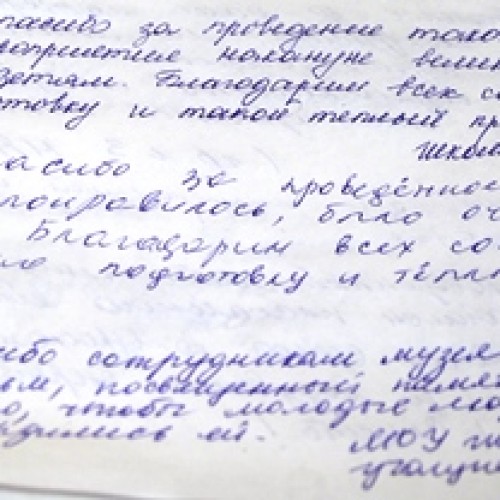 пасибо за проведение тако
роприятие накануне вели
детям. Благодарим всех со
отовку и такой теплый пр
школ
асибо за проведённое
понравилось, было оч
Благодарим всех со
подготовку и тёпл
ибо сотрудникам музея
посвященный памя
о, чтобы молодые мо
дились ей.
МОУ ги